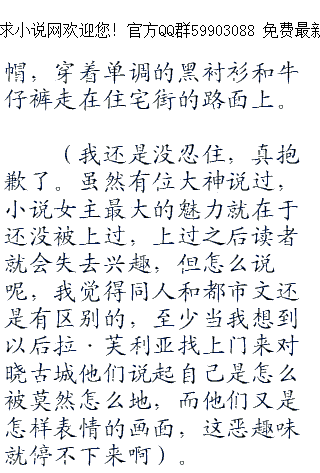 求小说网欢迎您！官方QQ群59903088 免费最新
帽，穿着单调的黑衬衫和牛
仔裤走在住宅街的路面上。
（我还是没忍住，真抱
歉了。虽然有位大神说过，
小说女主最大的魅力就在于
还没被上过，上过之后读者
就会失去兴趣，但怎么说
呢，我觉得同人和都市文还
是有区别的，至少当我想到
以后拉·芙利亚找上门来对
晓古城他们说起自己是怎么
被莫然怎么地，而他们又是
怎样表情的画面，这恶趣味
就停不下来啊）。